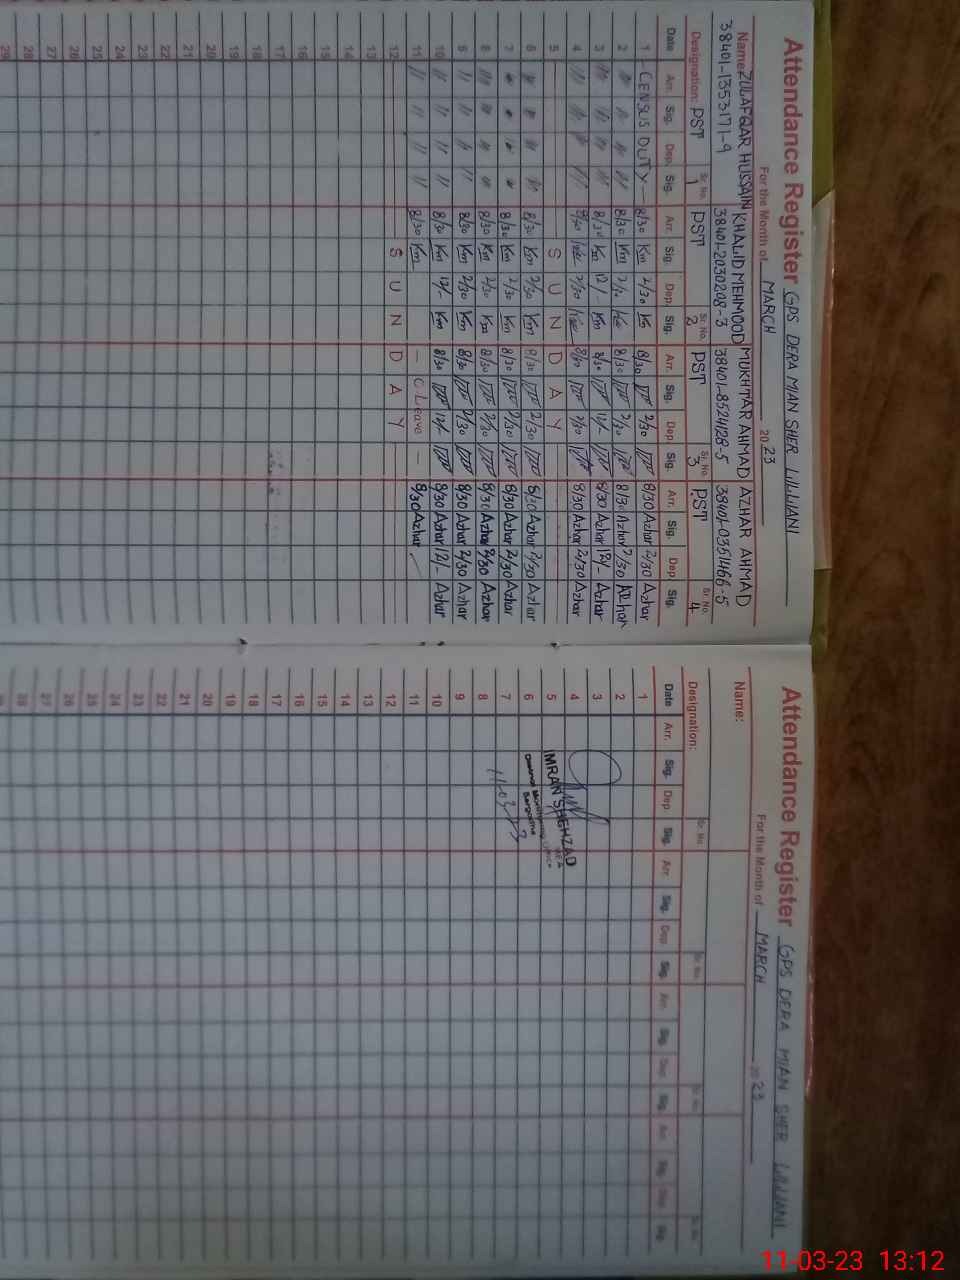 Attendance Register GPS DERA MIAN SHER LILLIANI
For the Month of MARCH 2023
Name: ZULAFQAR HUSSAIN KHALID MEHMOOD MUKHTAR AHMAD AZHAR AHMAD
38401-1353171-9 38401-2030208-3 38401-8524128-5 38401-0351466-5
Designation: PST Sr. No. 1 PST Sr. No. 2 PST Sr. No. 3 PST Sr. No. 4
Date Arr. Sig. Dep. Sig. Arr. Sig. Dep. Sig. Arr. Sig. Dep. Sig. Arr. Sig. Dep. Sig.
1 - CENSUS DUTY - 8/30 Km 2/30 Km 8/30 2/30 8/30 Azhar 2/30 Azhar
2 〃 〃 〃 〃 8/30 Km 8/30 2/30 8/30 Azhar 2/30 Azhar
3 〃 〃 〃 〃 8/30 Km 12/- Km 8/30 12/- 8/30 Azhar 12/- Azhar
4 〃 〃 〃 〃 8/30 2/30 8/30 2/30 8/30 Azhar 2/30 Azhar
5 S U N D A Y
6 〃 〃 〃 〃 8/30 Km 2/30 Km 8/30 2/30 8/30 Azhar 2/30 Azhar
7 〃 〃 〃 〃 8/30 Km 2/30 Km 8/30 2/30 8/30 Azhar 2/30 Azhar
8 〃 〃 〃 〃 8/30 Km 2/30 Km 8/30 2/30 8/30 Azhar 2/30 Azhar
9 〃 〃 〃 〃 8/30 Km 2/30 Km 8/30 2/30 8/30 Azhar 2/30 Azhar
10 〃 〃 〃 〃 8/30 Km 12/- Km 8/30 12/- 8/30 Azhar 12/- Azhar
11 〃 〃 〃 〃 8/30 Km - C. Leave - 8/30 Azhar
12 S U N D A Y
13
14
15
16
17
18
19
20
21
22
23
24
25
26
27
28
29
Attendance Register GPS DERA MIAN SHER LILLIANI
For the Month of MARCH 2023
Name:
Designation: Sr. No. Sr. No. Sr. No. Sr. No.
Date Arr. Sig. Dep. Sig. Arr. Sig. Dep. Sig. Arr. Sig. Dep. Sig. Arr. Sig. Dep. Sig.
1
2
3
4
5 IMRAN SHEHZAD
MEA
6 Sargodha
7 11-03-23
8
9
10
11
12
13
14
15
16
17
18
19
20
21
22
23
24
25
26
27
28
11-03-23 13:12